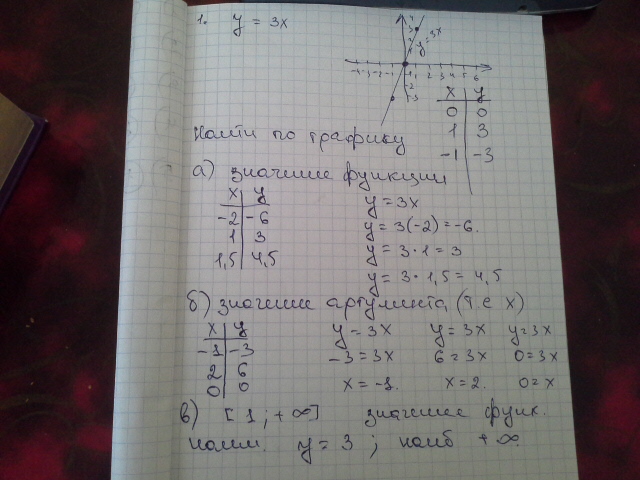 1. y = 3x
y=3x
x y
0 0
1 3
-1 -3
Найти по графику
а) значение функции
x y
-2 -6
1 3
1,5 4,5
y = 3x
y = 3(-2) = -6.
y = 3·1 = 3
y = 3·1,5 = 4,5
б) значение аргумента (т.е x)
x y
-1 -3
2 6
0 0
y = 3x y = 3x y = 3x
-3 = 3x 6 = 3x 0 = 3x
x = -1. x = 2. 0 = x
в) [1; +∞] значение функ.
наим. y = 3 ; наиб +∞